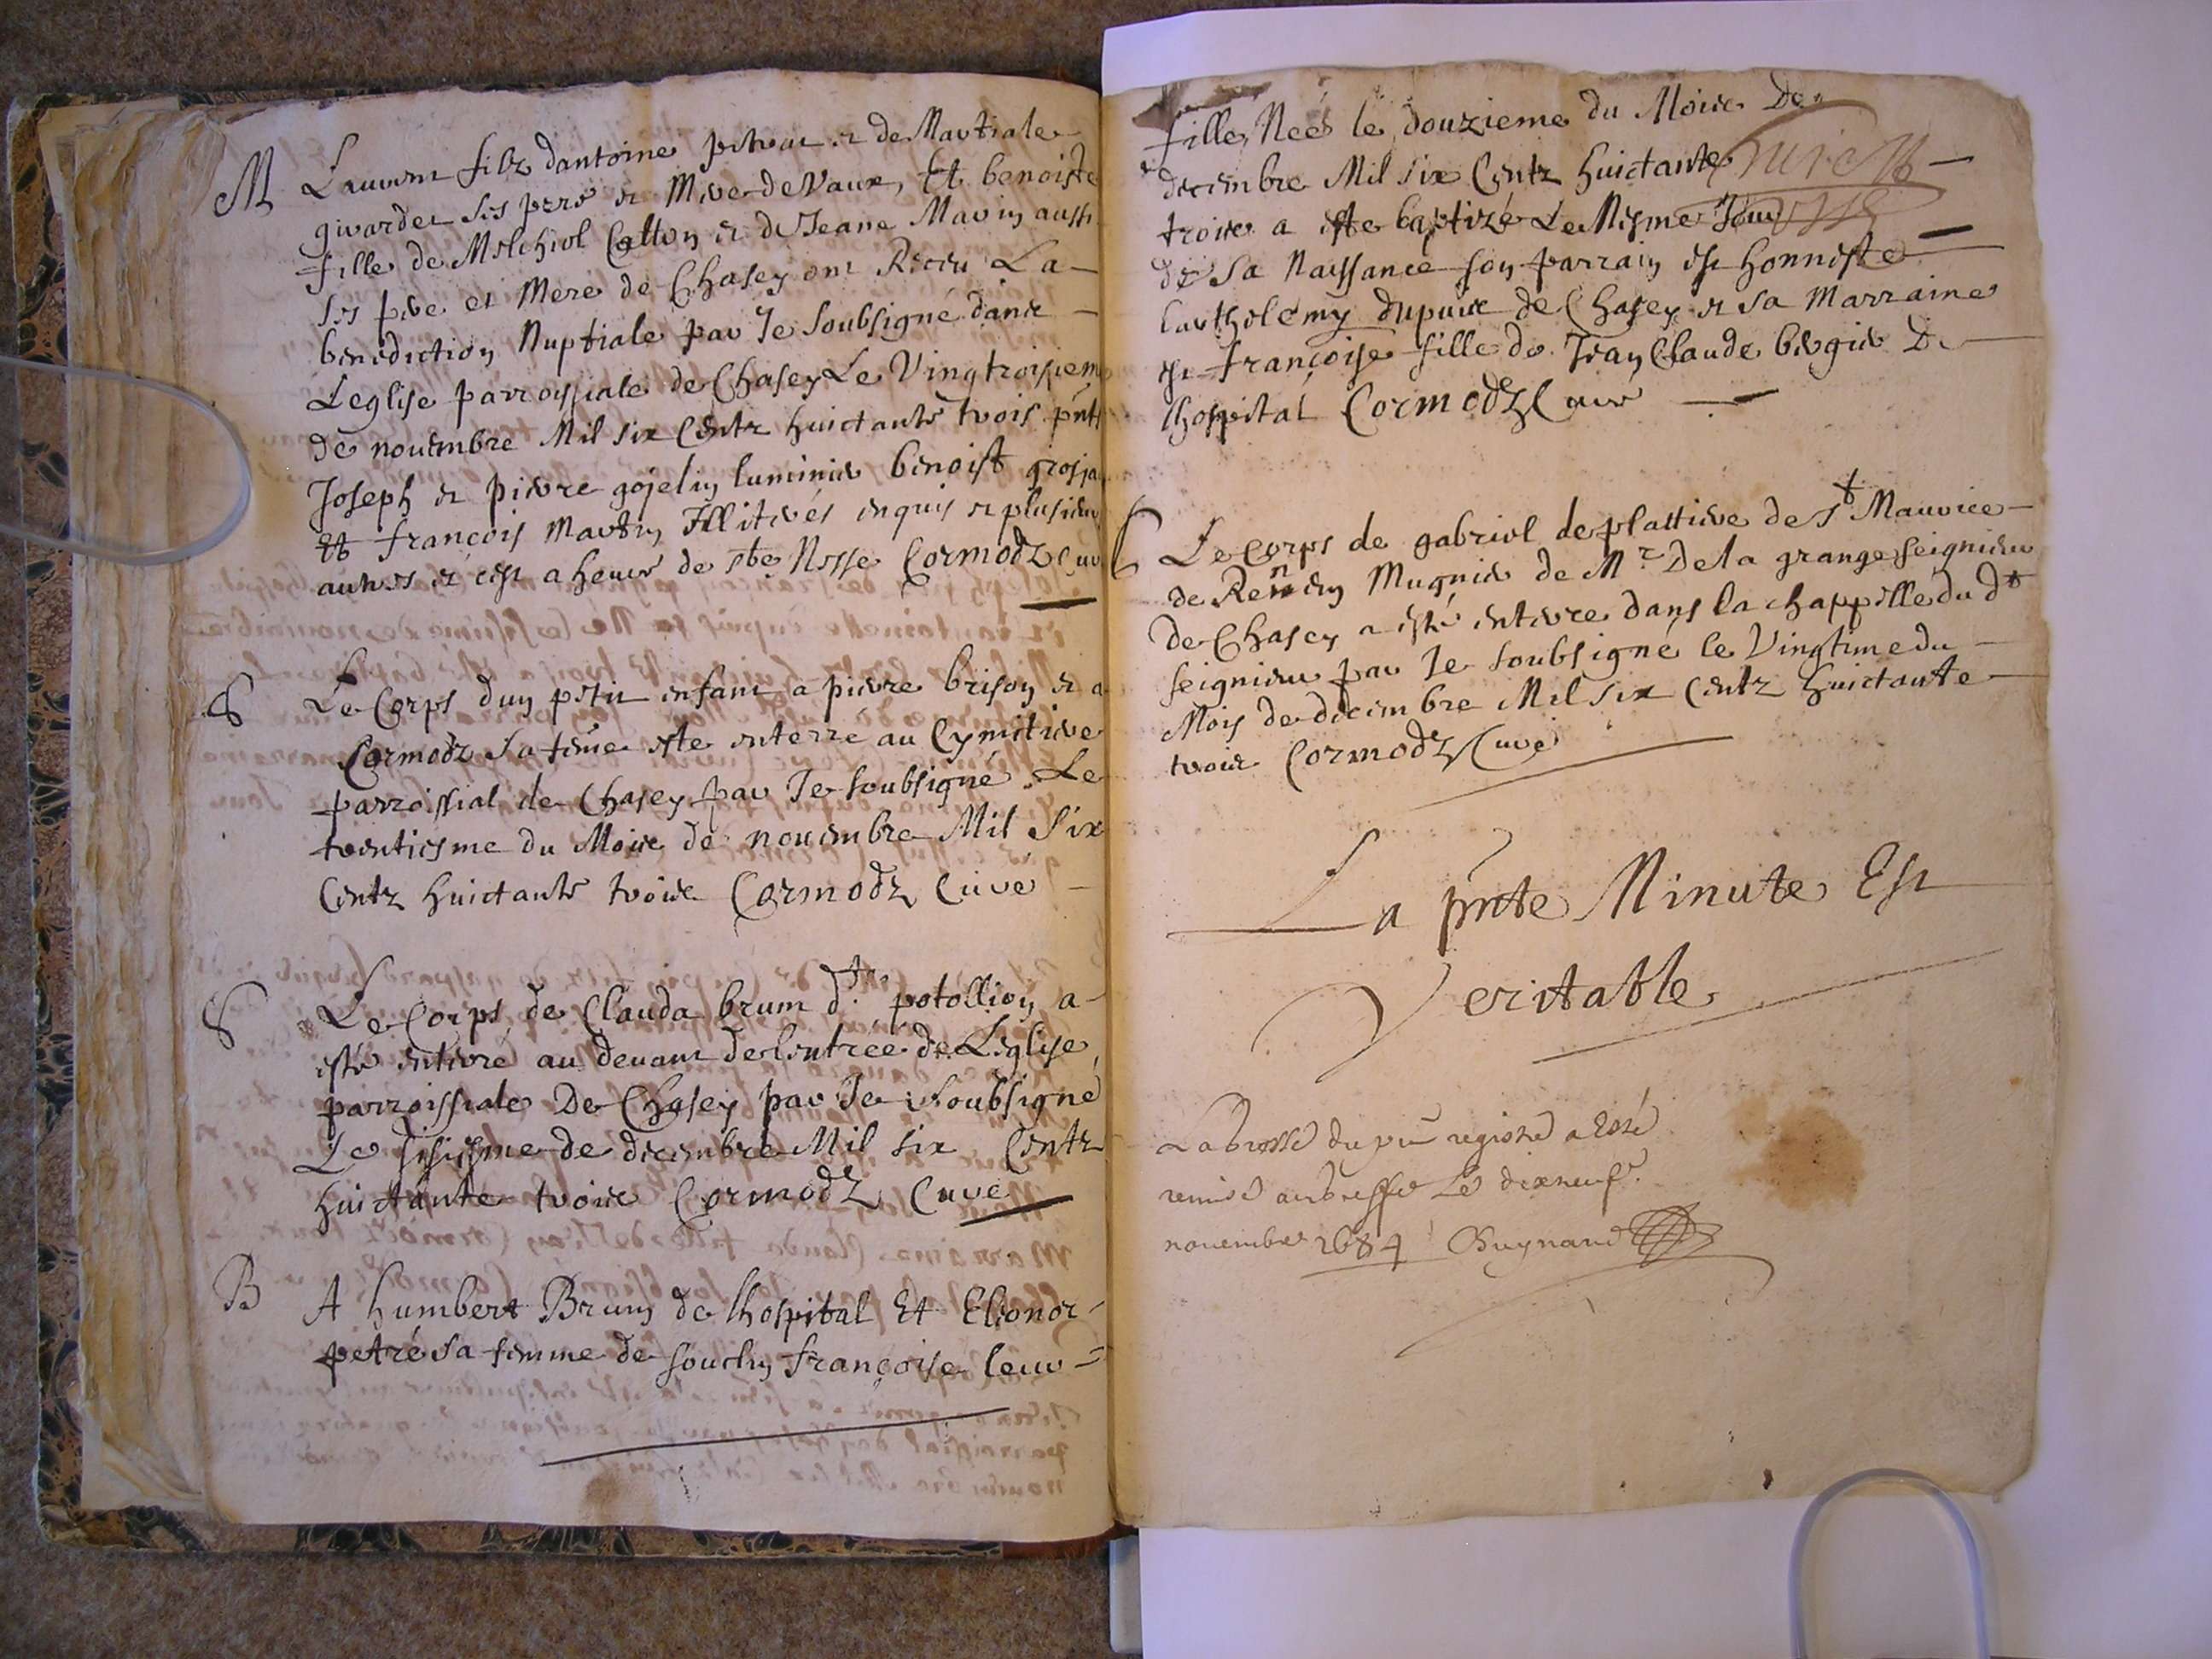 M Lauvent filz dantoine petvat et de Mavtiale
givardet ses pere et Mive de Vaux, Et benoiste
fille de Melchiol Catton et de Jeane Mavin aussi
ses pive et Mere de Chasey ont Receu La
benediction Nuptiale pav Je Soubsigné dans
Leglise parroissiale de Chasey Le Vingtroisieme
de nouembre Mil six Centz huictante trois pnts
Joseph et pievre gojelin luminiev benoist grosja
Et françois Mavtin Illitevés enquis et plusieu
autres et cest a heuve de ste Messe Cormodz cuv
S Le Corps dun petit enfant a pievre brison et a
Cormodz sa feme este enterre au Cymitieve
parroissial de Chasey pav Je soubsigné Le
tventiesme du Moiis de nouembre Mil Six
Centz huictante tvois Cormodz Cuvé
S Le Corps de Clauda brum dte potollion a
esté entevré au deuant de lentrée de Leglise
parroissiale De Chasey pav Je Soubsigné
Le sisiesme de decembre Mil six Centz
huictante tvois Cormodz Cuvé
B A humbert Brun de lhospital Et Elionor
petré sa femme de souclin françoise leuv =
fille Neé le douzieme du Moiis De
decembre Mil six Centz huictante
troiis a este baptizé Le Mesme Jouv
de sa Naissance son parrain est honneste
bavtholémy dupuis de Chasey et sa Marraine
est françoise fille de Jean Claude bevgiev De
lhospital Cormodz Cuvé
S Le Corps de gabriel de plattieve de St Mauvice
de Remen Mugniev de Mr De la grange seignieuv
de Chasey a esté entevre dans la chappelle du dt
seignieuv pav Je soubsigné le Vingtime du
Mois de decembre Mil six Centz huictante
tvois Cormodz Cuvé
La pnte Minute Est
Veritable
La brosse du pnt registre a Esté
remise au Le dixneufe
nouembre 1684 Buynand